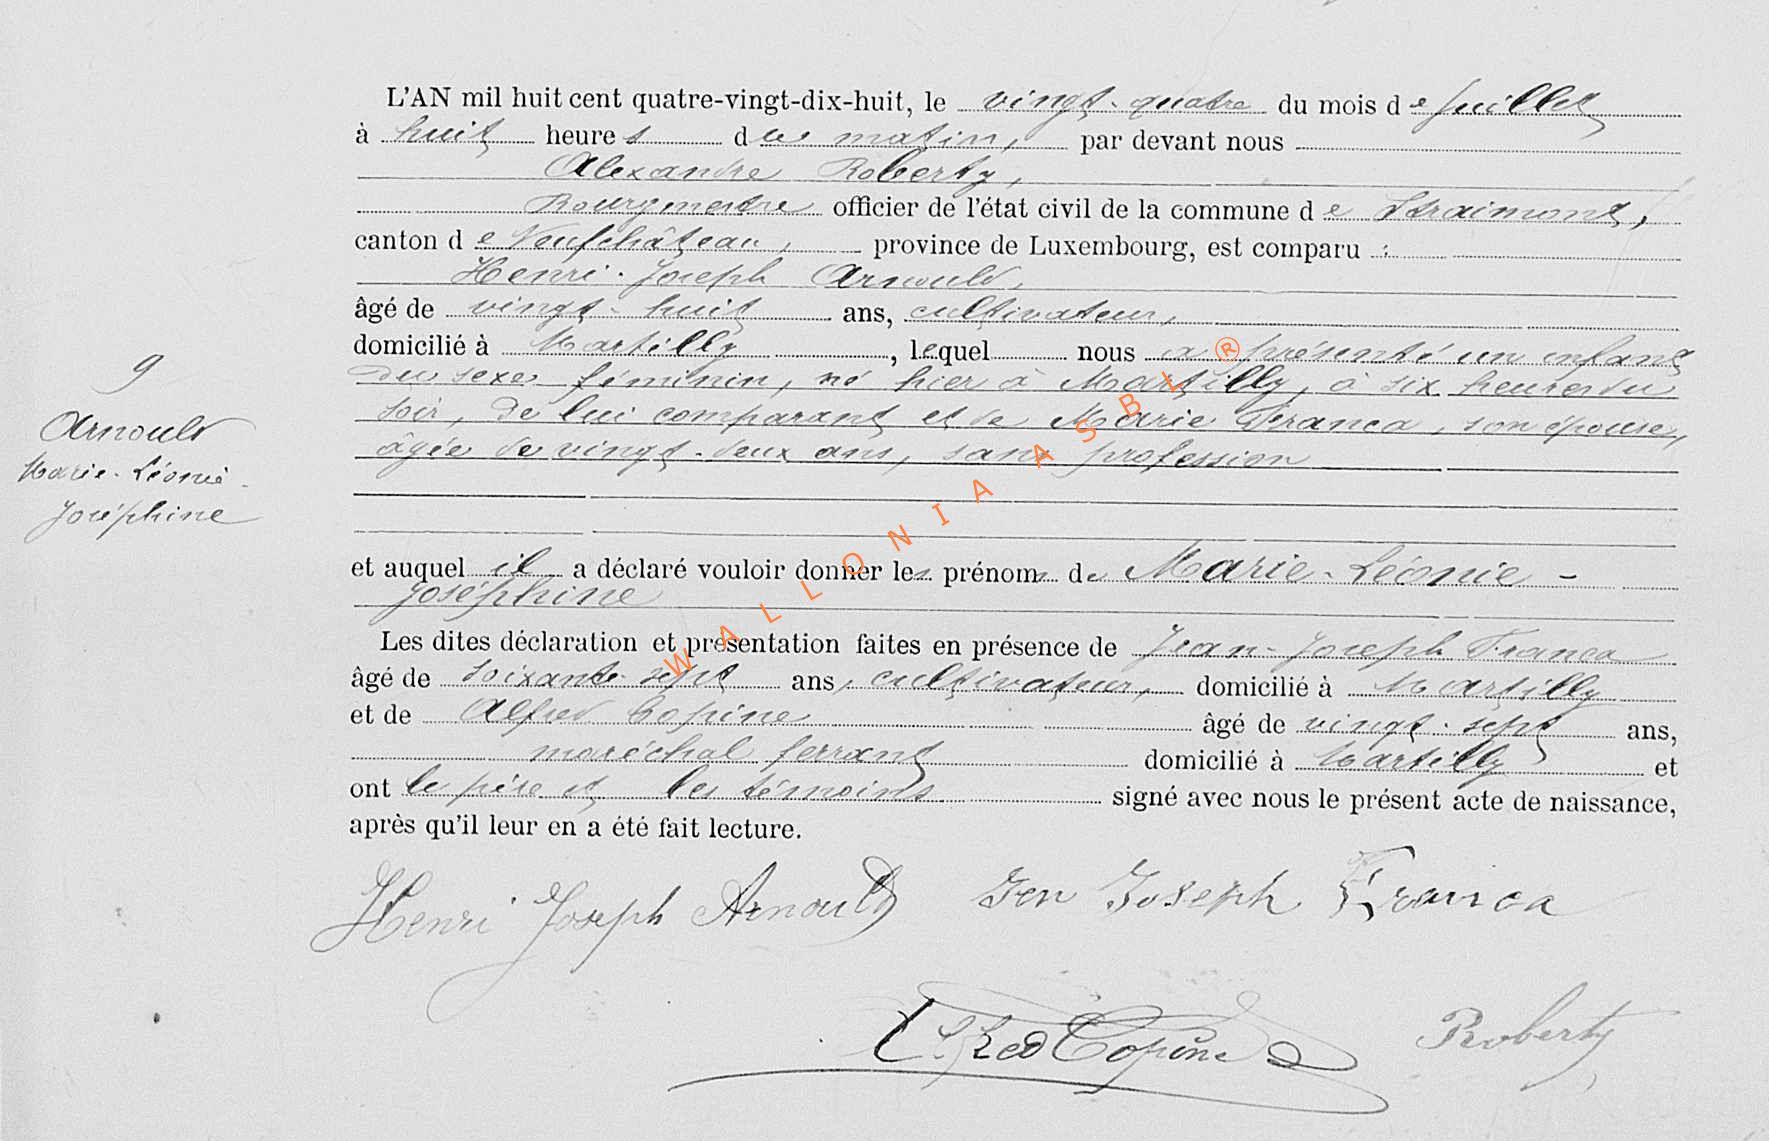 L'AN mil huit cent quatre-vingt-dix-huit, le vingt-quatre du mois de Juillet
à huit heures du matin, par devant nous
Alexandre Roberty,
Bourgmestre officier de l'état civil de la commune de Straimont,
canton de Neufchâteau, province de Luxembourg, est comparu :
Henri-Joseph Arnould,
âgé de vingt-huit ans, cultivateur,
domicilié à Martilly, lequel nous a présenté un enfant
du sexe féminin, né hier à Martilly, à six heures du
soir, de lui comparant et de Marie Franca, son épouse,
âgée de vingt-deux ans, sans profession
9
Arnould
Marie-Léonie-
Joséphine
et auquel il a déclaré vouloir donner les prénoms de Marie-Léonie-
Joséphine
Les dites déclaration et présentation faites en présence de Jean-Joseph Franca
âgé de soixante-sept ans, cultivateur, domicilié à Martilly
et de Alfred Copine âgé de vingt-sept ans,
maréchal ferrant domicilié à Martilly et
ont le père et les témoins signé avec nous le présent acte de naissance,
après qu'il leur en a été fait lecture.
Henri Joseph Arnould Jen Joseph Franca
Alfred Copine Roberty
WALLONIA ASBL ®